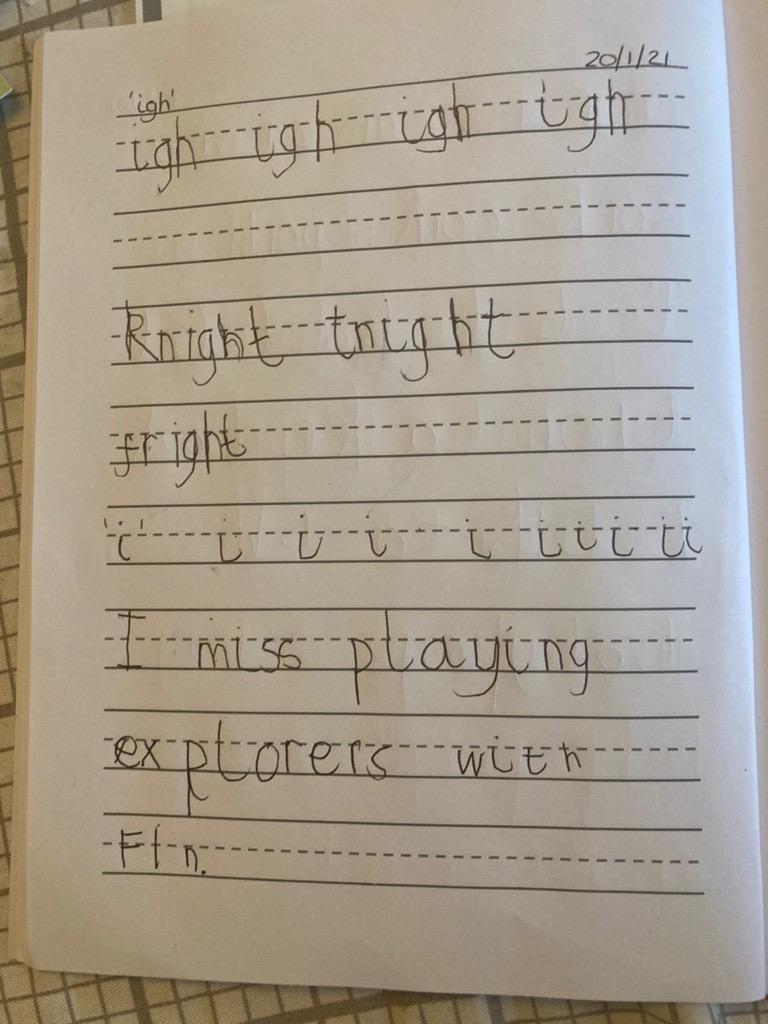 20/1/21
'igh'
igh igh igh igh
Knight tnight
fright
'i' i i i i i i i i i
I miss playing
explorers with
Fin.